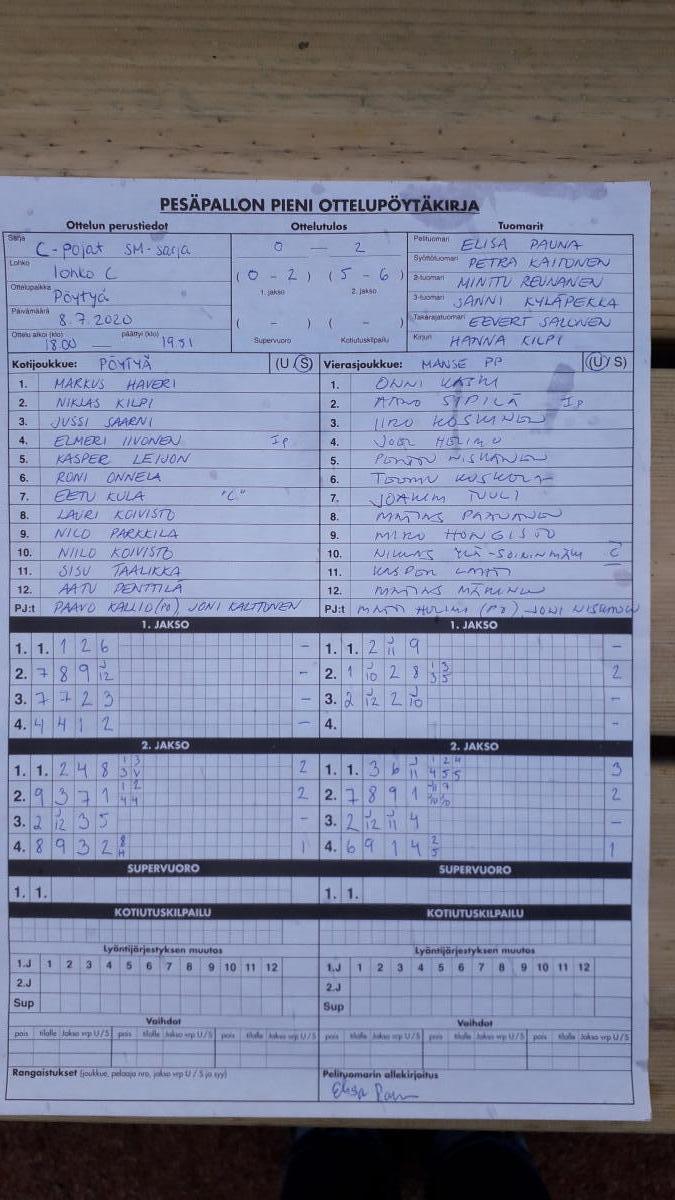 PESÄPALLON PIENI OTTELUPÖYTÄKIRJA
Ottelun perustiedot Ottelutulos Tuomarit
Sarja C-pojat SM-sarja
Lohko lohko C
Ottelupaikka Pöytyä
Päivämäärä 8.7.2020
Ottelu alkoi (klo) 18.00 — päättyi (klo) 19.51
0 — 2
(0 - 2) (5 - 6)
1. jakso 2. jakso
( - ) ( - )
Supervuoro Kotiutuskilpailu
Pelituomari ELISA PAUNA
Syöttötuomari PETRA KAITONEN
2-tuomari MINTTU REUNANEN
3-tuomari JANNI KYLÄPEKKA
Takarajatuomari EEVERT SALLINEN
Kirjuri HANNA KILPI
Kotijoukkue: PÖYTYÄ (U S)
1. MARKUS HAVERI
2. NIKLAS KILPI
3. JUSSI SAARNI
4. ELMERI IIVONEN Ip
5. KASPER LEIJON
6. RONI ONNELA
7. EETU KULA "C"
8. LAURI KOIVISTO
9. NILO PARKKILA
10. NIILO KOIVISTO
11. SISU TAALIKKA
12. AATU PENTTILÄ
PJ:t PAAVO KALLIO (PJ), JONI KALTTONEN
Vierasjoukkue: MANSE PP (U S)
1. ONNI
2. SIPILÄ Ip
3. IIRO KOSKINEN
4. JOEL HOLIMO
5. PONTTU NISKANEN
6. TEEMU KUSKELA
7. JOAKIM TUULI
8. MATIAS PAANANEN
9. MIRO HONGISTO
10. NIKLAS YLÄ-SOININMÄKI C
11. KASPER LAHTI
12. MATIAS MÄKINEN
PJ:t MATTI (PJ), JONI NISKANEN
1. JAKSO
1. 1. 1 2 6 –
2. 7 8 9 J12 –
3. 7 7 2 3 –
4. 4 4 1 2 –
1. JAKSO
1. 1. 2 J11 9 –
2. 1 J10 2 8 1 3 3 5 2
3. 2 J12 2 J10 –
4. –
2. JAKSO
1. 1. 2 4 8 1 3 3 V 2
2. 9 3 7 1 1 2 4 4 2
3. 2 J12 3 5 –
4. 8 9 3 2 8 H 1
2. JAKSO
1. 1. 3 6 J11 1 2 4 4 5 5 3
2. 7 8 9 1 J11 9 J10 J10 2
3. 2 J12 J11 4 –
4. 6 9 1 4 2 5 1
SUPERVUORO SUPERVUORO
1. 1. 1. 1.
KOTIUTUSKILPAILU KOTIUTUSKILPAILU
Lyöntijärjestyksen muutos Lyöntijärjestyksen muutos
1.J 1 2 3 4 5 6 7 8 9 10 11 12 1.J 1 2 3 4 5 6 7 8 9 10 11 12
2.J 2.J
Sup Sup
Vaihdot Vaihdot
pois tilalle Jakso vrp U/S pois tilalle Jakso vrp U/S pois tilalle Jakso vrp U/S pois tilalle Jakso vrp U/S pois tilalle Jakso vrp U/S pois tilalle Jakso vrp U/S
Rangaistukset (joukkue, pelaaja nro, jakso vrp U / S ja syy) Pelituomarin allekirjoitus
Elisa Pauna